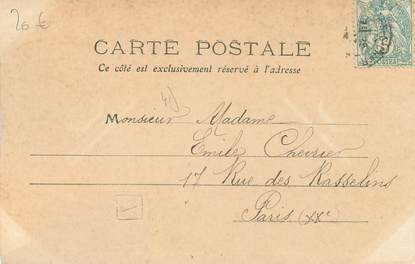 20 €
CARTE POSTALE
Ce côté est exclusivement réservé à l'adresse
Monsieur Madame
Emile Chevrier
17 Rue des Rasselins
Paris (XXe)